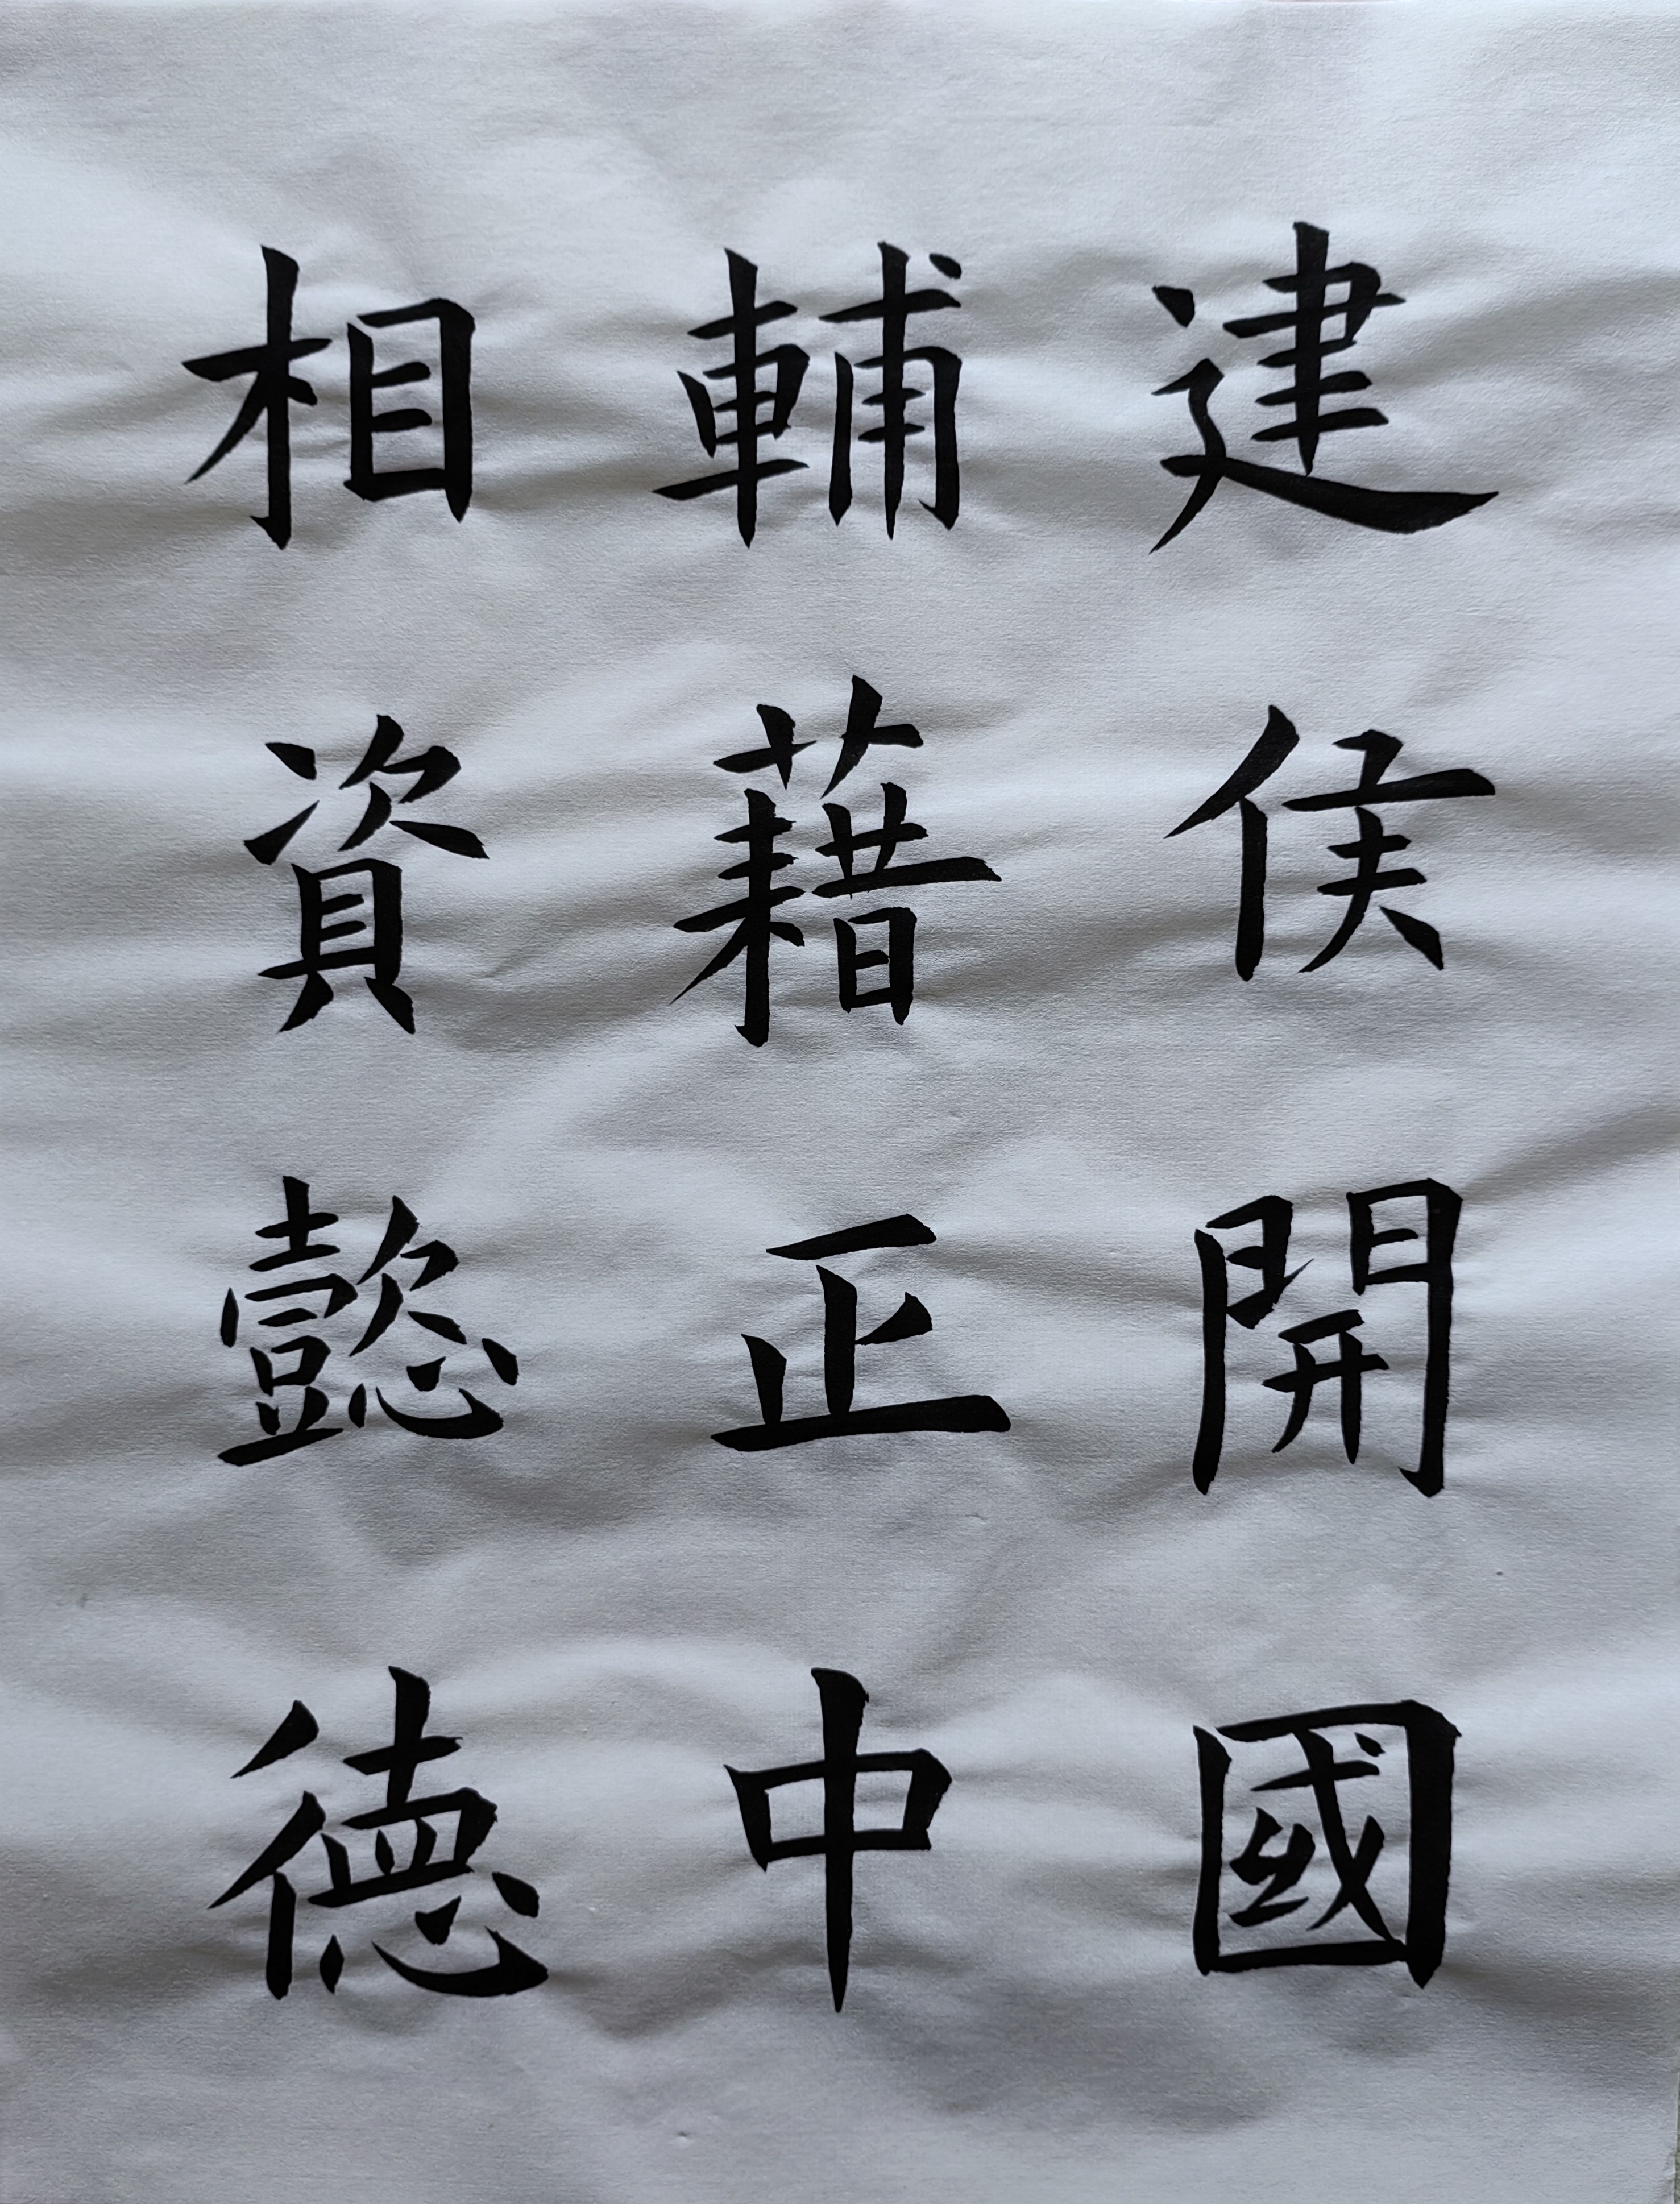 建侯開國
輔藉正中
相資懿德